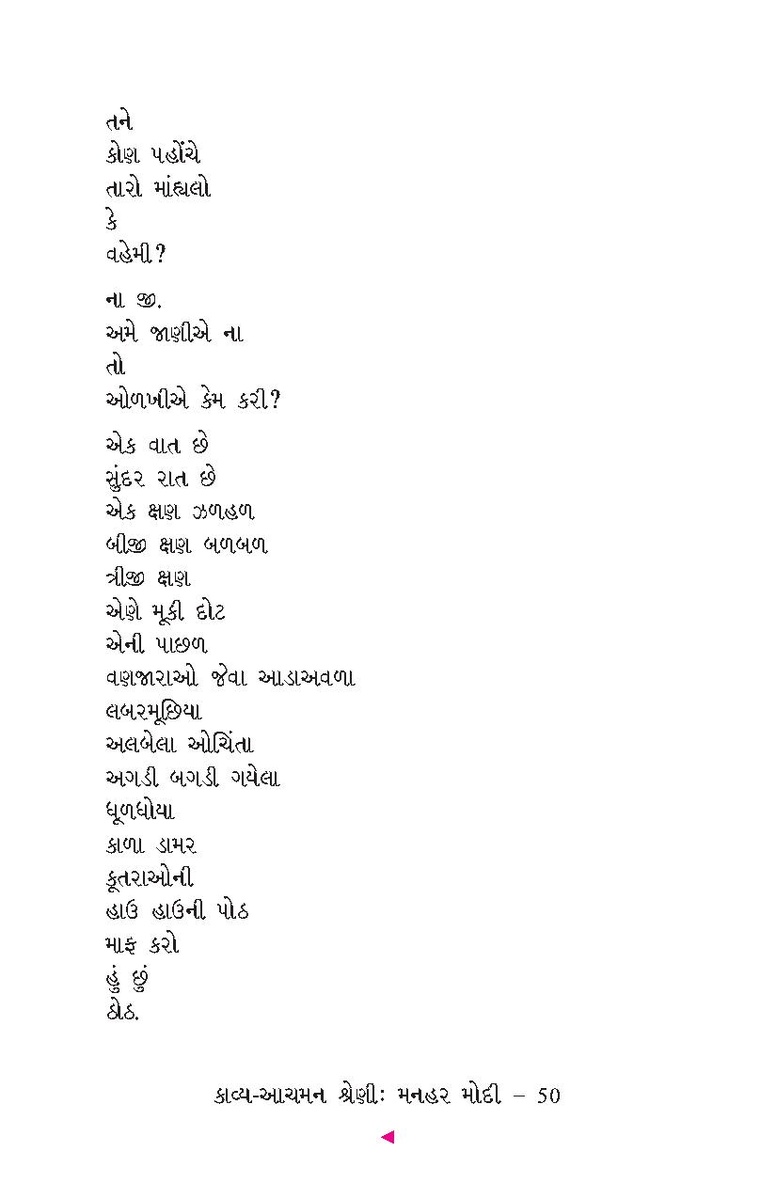 તને
કોણ પહોંચે
તારો માંહ્યલો
કે
વહેમી?
ના જી.
અમે જાણીએ ના
તો
ઓળખીએ કેમ કરી?
એક વાત છે
સુંદર રાત છે
એક ક્ષણ ઝળહળ
બીજી ક્ષણ બળબળ
ત્રીજી ક્ષણ
એણે મૂકી દોટ
એની પાછળ
વણજારાઓ જેવા આડાઅવળા
લબરમૂછિયા
અલબેલા ઓચિંતા
અગડી બગડી ગયેલા
ધૂળધોયા
કાળા ડામર
કૂતરાઓની
હાઉ હાઉની પોઠ
માફ કરો
હું છું
ઠોઠ.
કાવ્ય-આચમન શ્રેણી: મનહર મોદી – 50